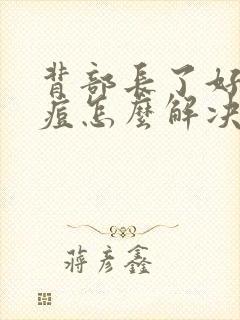 背部長了好
痘怎麼解决
蔣彦鑫